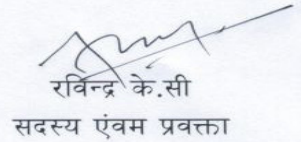 रविन्द्र के.सी
सदस्य एंवम प्रवक्ता